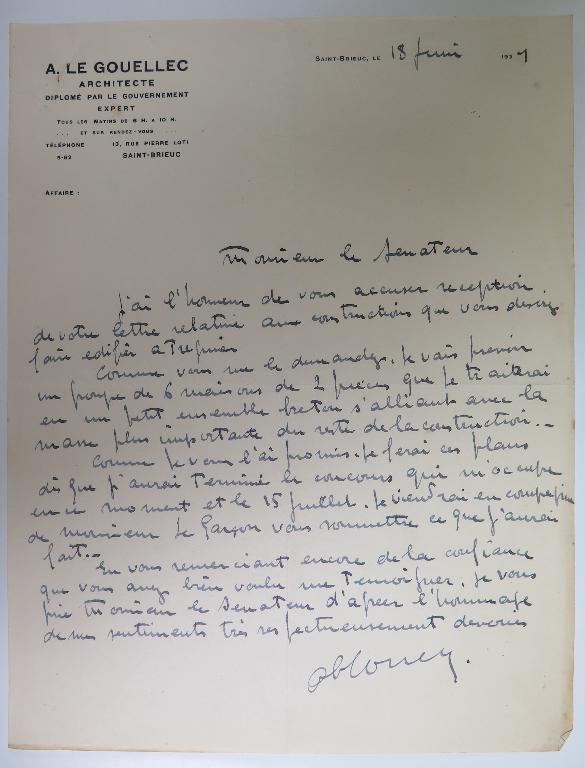 A. LE GOUELLEC
ARCHITECTE
DIPLOMÉ PAR LE GOUVERNEMENT
EXPERT
TOUS LES MATINS DE 8 H. A 10 H.
... ET SUR RENDEZ-VOUS ...
TÉLÉPHONE 13, RUE PIERRE LOTI
5-82 SAINT-BRIEUC
SAINT-BRIEUC, LE 18 Juin 1937
AFFAIRE :
Monsieur le Senateur
J'ai l'honneur de vous accuser reception
de votre lettre relative aux constructions que vous desirez
faire edifier a Treguier
Comme vous me le demandez, je vais prevoir
un groupe de 6 maisons de 2 pièces que je traiterai
en un petit ensemble breton s'alliant avec la
masse plus importante du reste de la construction._
Comme je vous l'ai promis, je ferai ces plans
dès que j'aurai terminé le concours qui m'occupe
en ce moment et le 15 juillet, je viendrai en compagnie
de monsieur Le Garçon vous soumettre ce que j'aurai
fait._
En vous remerciant encore de la confiance
que vous avez bien voulu me temoigner, je vous
prie Monsieur le Senateur d'agreer l'hommage
de mes sentiments très respectueusement devoués